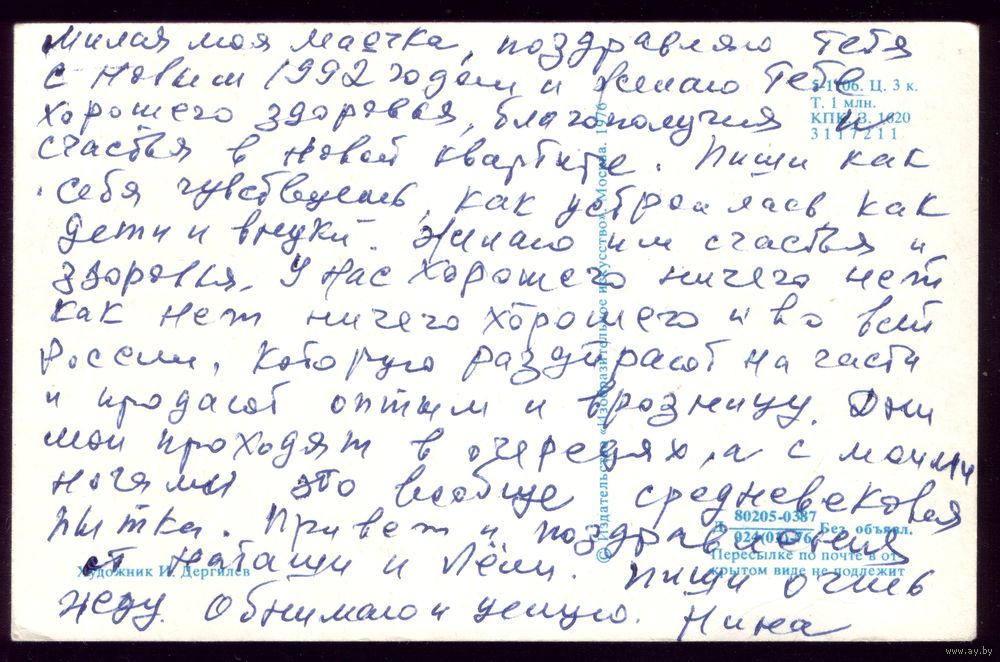 Милая моя Маечка, поздравляю тебя
с Новым 1992 годом и желаю тебе
хорошего здоровья, благополучия и
счастья в новой квартире. Пиши как
себя чувствуешь, как устроилась, как
дети и внуки. Желаю им счастья и
здоровья. У нас хорошего ничего нет
как нет ничего хорошего и во всей
России, которую раздирают на части
и продают оптом и врозницу. Дни
мои проходят в очередях, а с моими
ногами это вообще средневековая
пытка. Привет и поздравления
от Наташи и Лёли. Пиши очень
жду. Обнимаю и целую. Нина
5-1106. Ц. 3 к.
Т. 1 млн.
КПК. З. 1620
3117211
© Издательство «Изобразительное искусство». Москва. 1976
80205-0387
Д Без объявл.
024(01)-76
Пересылке по почте в от-
крытом виде не подлежит
Художник И. Дергилев
www.ay.by